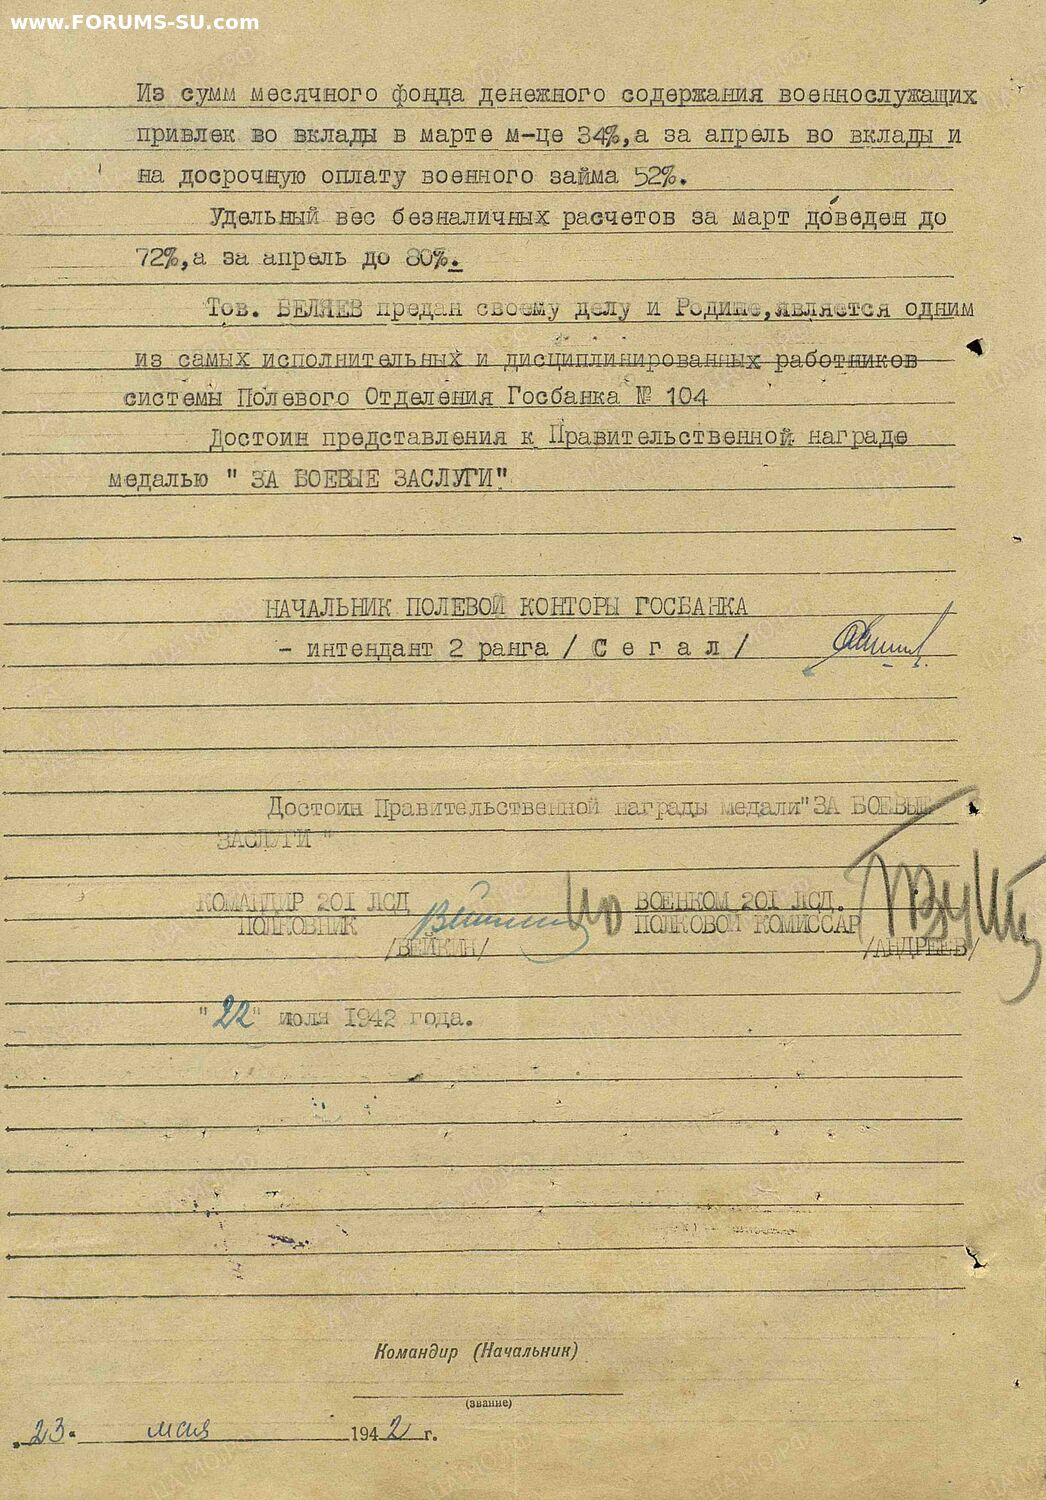 www.FORUMS-SU.com
Из сумм месячного фонда денежного содержания военнослужащих
привлек во вклады в марте м-це 34%,а за апрель во вклады и
на досрочную оплату военного займа 52%.
Удельный вес безналичных расчетов за март доведен до
72%,а за апрель до 80%.
Тов. БЕЛЯЕВ предан своему делу и Родине,является одним
из самых исполнительных и дисциплинированных работников
системы Полевого Отделения Госбанка № 104
Достоин представления к Правительственной награде
медалью " ЗА БОЕВЫЕ ЗАСЛУГИ"
НАЧАЛЬНИК ПОЛЕВОЙ КОНТОРЫ ГОСБАНКА
- интендант 2 ранга / С е г а л /
Достоин Правительственной награды медали"ЗА БОЕВЫЕ
ЗАСЛУГИ "
КОМАНДИР 201 ЛСД ВОЕНКОМ 201 ЛСД.
ПОЛКОВНИК ПОЛКОВОЙ КОМИССАР
/ВЕЙКИН/ /АНДРЕЕВ/
"22" июля 1942 года.
Командир (Начальник)
(звание)
„23" мая 1942 г.